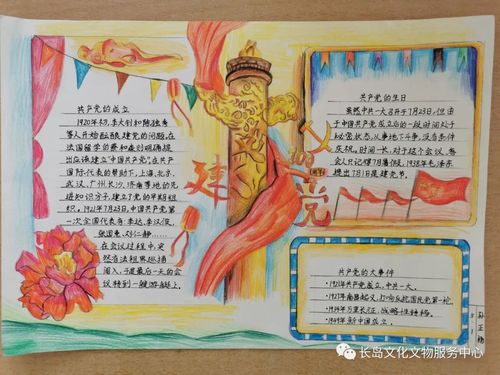 共产党的成立
1920年初,李大钊和陈独秀
等人开始酝酿建党的问题,在
法国留学的蔡和森则明确提
出应该建立"中国共产党",在共产
国际代表的帮助下,上海、北京、
武汉、广州、长沙、济南等地的先
进知识分子,建立了党的早期组
织。1921年7月23日,中国共产党第
一次全国代表有:李达、李汉俊、
张国焘、刘仁静……
在会议过程中突
然有法租界巡捕
闯入,于是最后一天的会
议转到一艘游艇上。
建
党
100
周年
共产党的生日
虽然中共一大召开于7月23日,但由
于中国共产党成立后的一段时间对于
秘密状态,从事地下斗争,没有条件
庆祝,时间一长,对于这个会议,与
会人只记得7月暑假,1938年毛泽东
提出7月1日是建党节。
共产党的大事件
·1921年共产党成立,中共一大。
·1927年南昌起义,打响反抗国民党第一枪。
·1934年万里长征,战略性转移。
·1949年新中国成立。
长岛文化文物服务中心